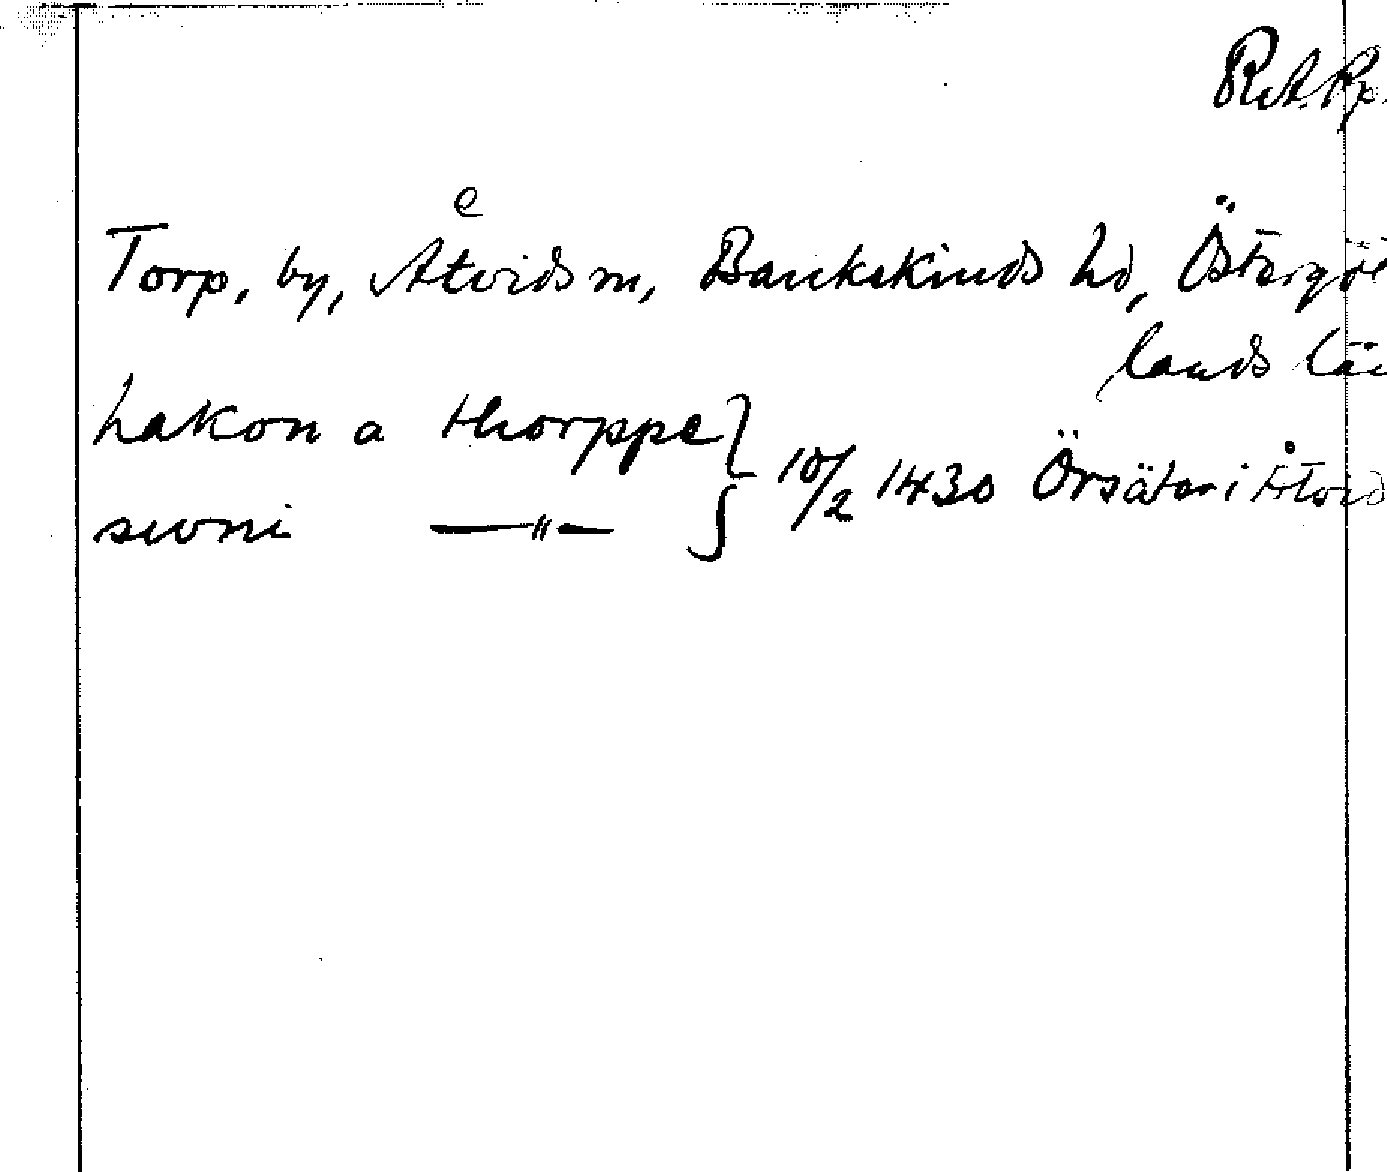 RA Pp.
Torp, by, Åtvids sn, Bankekinds hd, Östergöt
lands län
hakon a thorppe } 10/2 1430 Örsäter i Åtvid
swni —"—